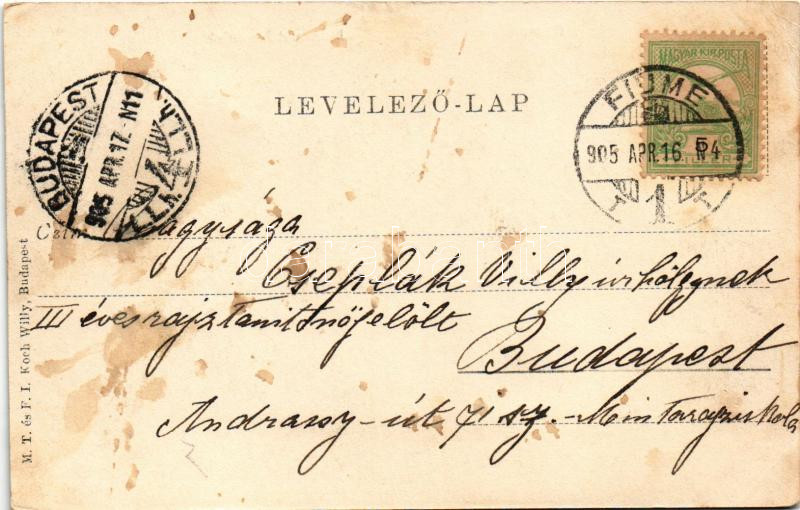 MAGYAR KIR. POSTA
5
FIUME
905 APR. 16. N4
1
BUDAPEST
905 APR. 17. N11
4
LEVELEZŐ-LAP
Czím: Nagysága
Cseplák Villy úrhölgynek
III éves rajztanítónőjelölt
Budapest
Andrassy-út 71 sz. - Mintarajziskola
M. T. és F. I. Koch Willy, Budapest